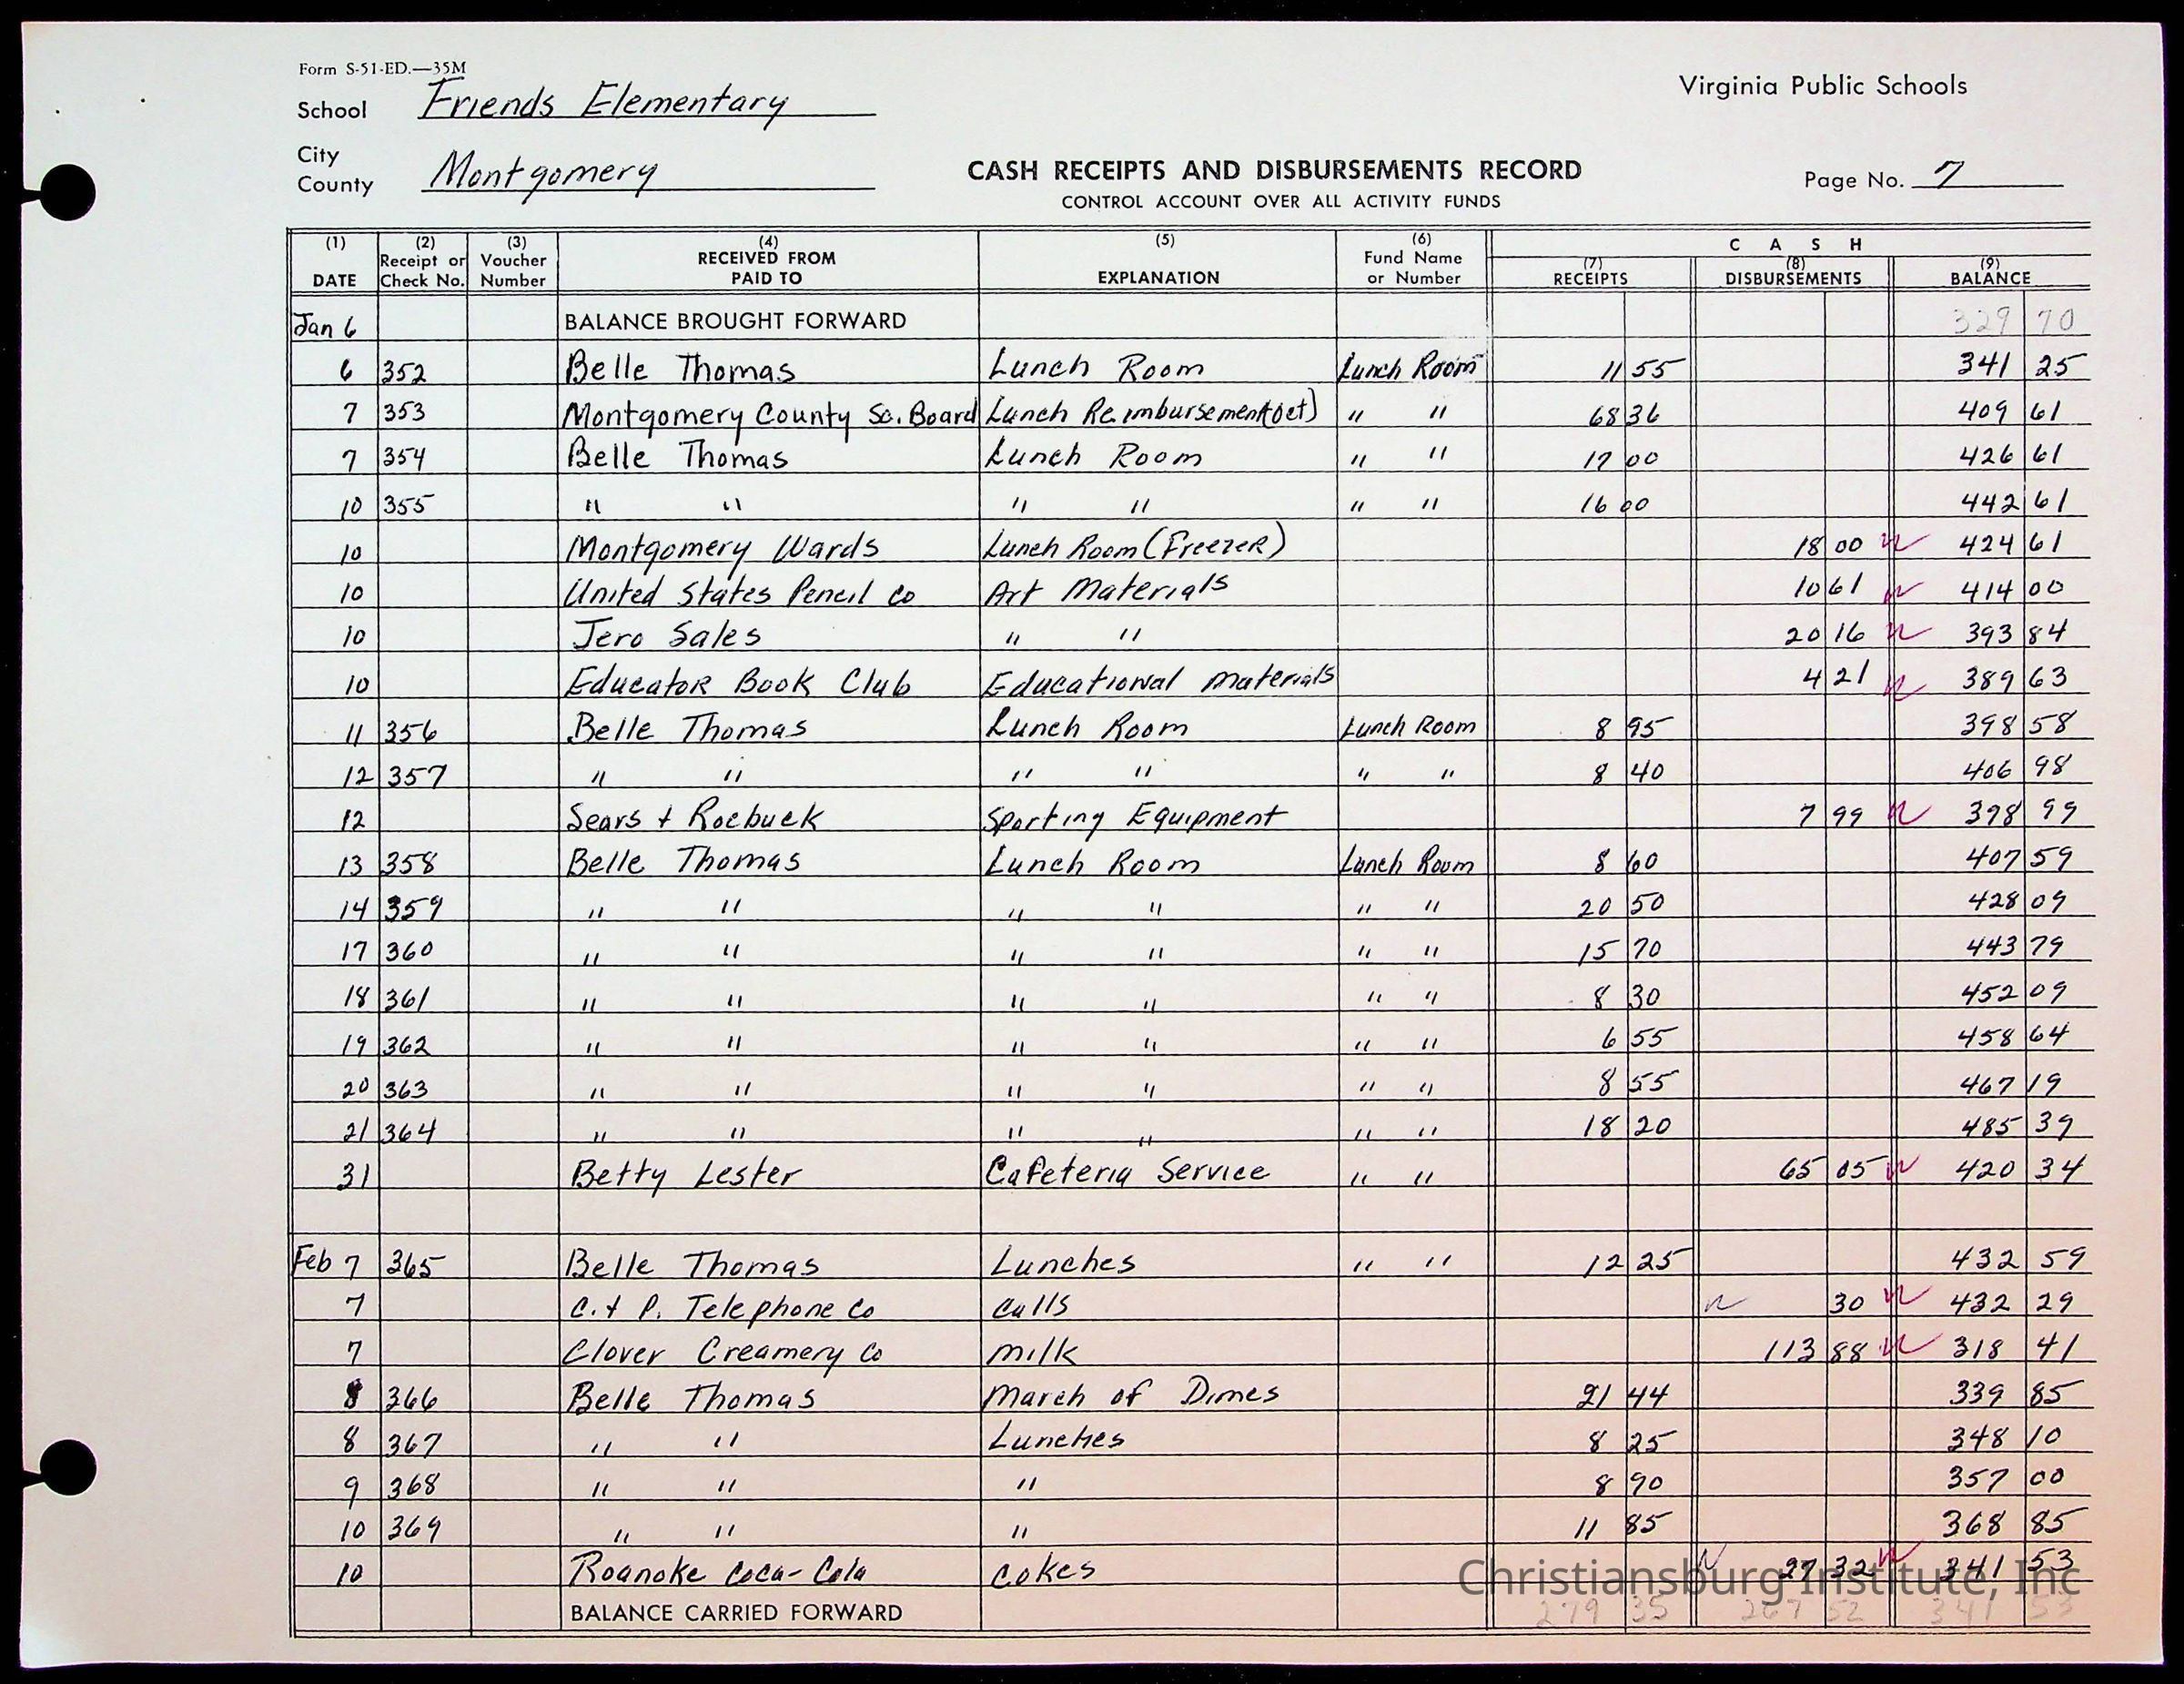 Form S-51-ED.—35M
School Friends Elementary
Virginia Public Schools
City
County Montgomery
CASH RECEIPTS AND DISBURSEMENTS RECORD
CONTROL ACCOUNT OVER ALL ACTIVITY FUNDS
Page No. 7
(1) DATE (2) Receipt or Check No. (3) Voucher Number (4) RECEIVED FROM PAID TO (5) EXPLANATION (6) Fund Name or Number CASH (7) RECEIPTS (8) DISBURSEMENTS (9) BALANCE
Jan 6 BALANCE BROUGHT FORWARD 329 70
6 352 Belle Thomas Lunch Room Lunch Room 11 55 341 25
7 353 Montgomery County Sc. Board Lunch Reimbursement (Oct) " " 68 36 409 61
7 354 Belle Thomas Lunch Room " " 17 00 426 61
10 355 " " " " " " 16 00 442 61
10 Montgomery Wards Lunch Room (Freezer) 18 00 424 61
10 United States Pencil Co Art Materials 10 61 414 00
10 Jero Sales " " 20 16 393 84
10 Educator Book Club Educational Materials 4 21 389 63
11 356 Belle Thomas Lunch Room Lunch Room 8 95 398 58
12 357 " " " " " " 8 40 406 98
12 Sears + Roebuck Sporting Equipment 7 99 398 99
13 358 Belle Thomas Lunch Room Lunch Room 8 60 407 59
14 359 " " " " " " 20 50 428 09
17 360 " " " " " " 15 70 443 79
18 361 " " " " " " 8 30 452 09
19 362 " " " " " " 6 55 458 64
20 363 " " " " " " 8 55 467 19
21 364 " " " " " " 18 20 485 39
31 Betty Lester Cafeteria Service " " 65 05 420 34
Feb 7 365 Belle Thomas Lunches " " 12 25 432 59
7 C. + P. Telephone Co calls 30 432 29
7 Clover Creamery Co milk 113 88 318 41
8 366 Belle Thomas March of Dimes 21 44 339 85
8 367 " " Lunches 8 25 348 10
9 368 " " " 8 90 357 00
10 369 " " " 11 85 368 85
10 Roanoke Coca-Cola cokes 27 32 341 53
BALANCE CARRIED FORWARD 279 35 267 52 341 53
Christiansburg Institute, Inc